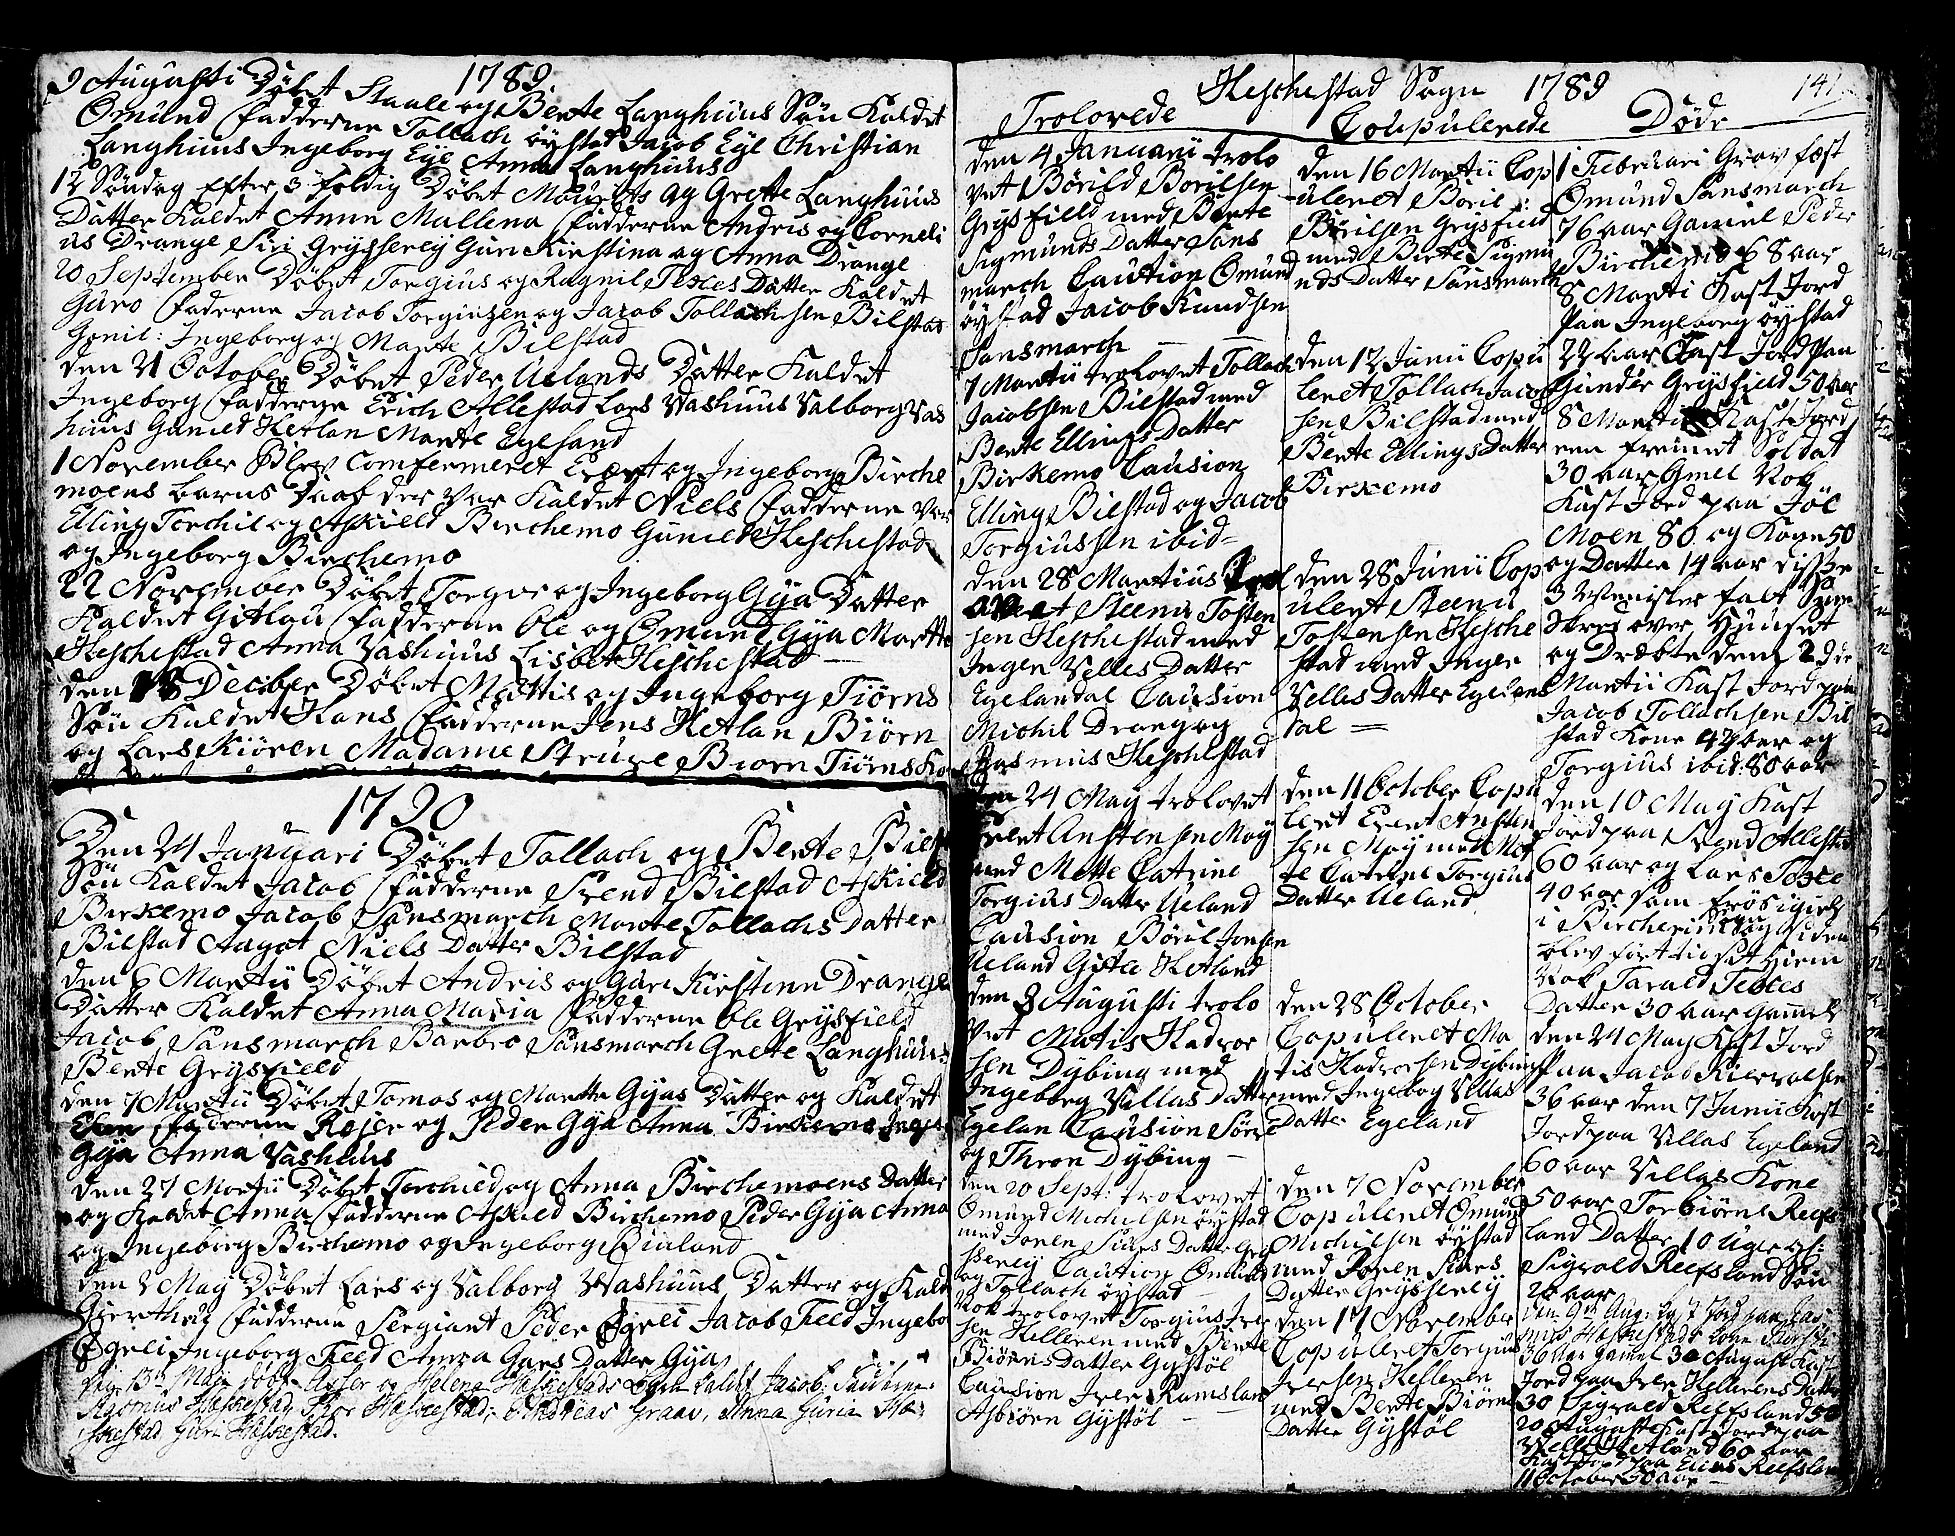 1789.
9 Augusti Döbt Staale og Bente Langhuus Sön Kaldet
Omund Fadderne Tollach öystad Jacob Eye Christian
Langhuus Ingeborg Eye Anna Langhuus
12 Söndag Efter 3 foldig Döbet Mourits og Grette Langhuus
Datter Kaldet Anne Mallena Fadderne Andris og Corneli
us Drange Siri Grÿsserey Guri Kirstina og Anna Drange
20 September Döbet Torgius og Ragnil Texes Datter Kaldet
Guro Faderne Jacob Torgiusen og Jacob Tollachsen Bilstad
Gonil: Ingeborg og Marte Bilstad
den 21 October Döbet Peder Uelands Datter Kaldet
Ingeborg Fadderne Erich Allestad Lars Vashuus Valborg Vas
huus Gunild Hetlan Marte Egesand
1 November Blev Comfermeret Evert og Ingeborg Birche
moens barns Daab der var Kaldet Niels Fadderne var
Elling Torchil og Askield Birchemo Gunild Heschestad
og Ingeborg Birchemo
22 November Döbet Torger og Ingeborg Gÿa Datter
Kaldet Gitlau Fadderne Ole og Omund Gÿa Marthe
Heschestad Anna Vashuus Lisbet Heschestad
den 28 Deciber Döbet Mattis og Ingeborg Tiörns
Sön Kaldet Hans Fadderne Jens Hetlan Biörn
og Lars Kiören Madame Struve Biorn Tiörns Ko
1790
Den 24 Januari Döbet Tollach og Bente Bilst
Sön Kaldet Jacob Fadderne Svend Bilstad Askield
Birkemo Jacob Sansmarch Marte Tollachs Datter
Bilstad Aagot Niels Datter Bilstad
den 6 Martii Döbet Andris og Guri Kirstinn Drange
Datter Kaldet Anna Maria Fadderne Ole Grÿsfield
Jacob Sansmarch Barbro Sansmarch Grete Langhuus
Bente Grÿsfield
den 7 Martii Döbet Tomas og Marthe Gÿas Datter og Kaldet
Fadderne Rejer og Peder Gÿa Anna Birkemo Inge
Gÿa Anna Vashuus
den 27 Martii Döbet Torchild og Anna Birchemoens Datter
og Kaldet Anna Fadderne Askild Birchemo Peder Gÿa Anna
og Ingeborg Birchemo og Ingeborg Bialand
den 2 May Döbet Lars og Valborg Vashuus Datter og Kald
Fadderne Sergiant Peder Egeli Jacob Feed Ingebo
Egeli Ingeborg Feed Anna Gars Datter Gÿa
13 May döbt Asser og Helene Heskestads Kaldt Jacob.
Rasmus Heskestad, Heskestad, Andreas Graav, Anna Guria He
skestad Guri Heskestad.
Heschestad Sogn 1789 141
Trolovede
den 4 Januarii trolo
vet Börild Borilsen
Grÿsfield med Bente
Sigmunds Datter Sans
march Caution Omund
öystad Jacob Knudsen
Sansmarch
7 Martii trolovet Tollach
Jacobsen Bilstad med
Bente Ellings Datter
Birkemo Causion
Elling Bilstad og Jacob
Torgiussen ibid=
den 28 Martius Trol
ovet Steenu Tosten
sen Heschestad med
Inger Velles Datter
Egelandal Causion
Michil Drang og
Rasmus Heschestad
den 24 May trolovet
Evert Anstensen Moÿ
med Mette Catrine
Torgius Datter Ueland
Causion Böril Jonsen
Ueland Gitle Hetland
den 3 Augusti trolo
vet Matis Hadvor
sen Dÿbing med
Ingeborg Villas Datter
Egelan Causion Sörse
og Thron Dÿbing
den 20 Sept: trolovet
Omund Michelsen öystad
med Joren Siurs Datter Grÿ
sserey Caution Omund
og Tollach öystad
Nok trolovet Torgius Iver
sen Helleren med Bente
Biörns Datter Gÿstöl
Causion Iver Ramsland
Asbiörn Gÿstöl
Coupulerede
den 16 Martii Cop
uleret Böril
Börilsen Grÿsfield
med Bente Sigmu
nds Datter Sansmarch
den 12 Junii Copu
leret Tollach Jacob
sen Bilstad med
Bente Ellings Datter
Birkemo
den 28 Junii Cop
uleret Steenu
Tostensen Hesche
stad med Inger
Velles Datter Egelans
dal =
den 11 October Copu
lert Evert Ansten
sen Moÿ med Met
te Catrine Torgius
Datter Ueland
den 28 October
Copuleret Ma
tis Hadvorsen Dÿbing
med Ingebog Villas
Datter Egeland
den 7 November
Copuleret Omund
Michilsen öystad
med Joren Siurs
Datter Grÿsserey
den 17 November
Copuleret Torgius
Iversen Helleren
med Bente Biörns
Datter Gÿstöl
Döde
1 Februari Grav fæst
Omund Sansmarch
76 aar Gamel Peder
Birchemo 68 aar
8 Marti Kast Jord
paa Ingeborg öystad
22 aar Kast Jord paa
Gunder Grÿsfield 50 aar
8 Marti Kast Jord
een freinet Soldat
30 aar Gmel Nok
Kast Jord paa Jöl
Moen 80 og Kone 50
og Datter 14 aar disse
3 Menisker falt Snee
over Huuset
og Dræbte dem 2 die
Martii Kast Jord paa
Jacob Tollachsen Bil
stad Kone 47 aar og
Torgius ibid: 80 aar
den 10 May Kast
Jord paa Svend Allestad
60 aar og Lars Texce
40 aar som
i Bircherim Sogn siden
blev fört til sit Hiem
Nok Tarald Texes
Datter 30 aar Gamel
den 24 May Kast Jord
paa Jacob
36 aar den 7 Junii Kast
Jord paa Villas Egeland
60 aar Villas Kone
50 aar Torbiörn Reefs
land Datter 10 Uger gl:
Sigvald Reefsland Sön
2 aar
den 9de Aug. Jord paa Ras
mus Heskestads Kone
36 aar gamel 30 August Kast
Jord paa Iver Hellerens Datter
30 Sigvald Reefsland 50
20 August Kast Jord paa
Velle Hetland 60 aar
Kast Jord paa Elias Reefsland
11 October 50 aar